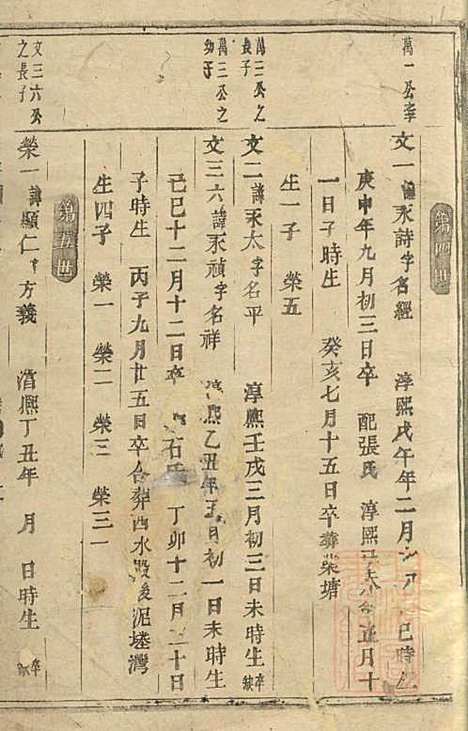 第四世
萬一公
文一諱永詩字名經 淳熙戊午年二月 巳時生
庚申年九月初三日卒 配張氏 淳熙 年五月十
一日子時生 癸亥七月十五日卒葬 塘
生一子 榮五
萬二公之長子
文二諱永太字名平 淳熙壬戌三月初三日未時生卒缺
萬三公之幼子
文三六諱永禎字名祥 熙乙丑年五月初一日未時生
己巳十二月十二日卒 石氏 丁卯十二月二十日
子時生 丙子九月廿五日卒合葬西水 後泥 灣
生四子 榮一 榮二 榮三 榮三一
第五世
文三六公之長子
榮一諱顯仁字方義 淳熙丁丑年 月 日時生卒